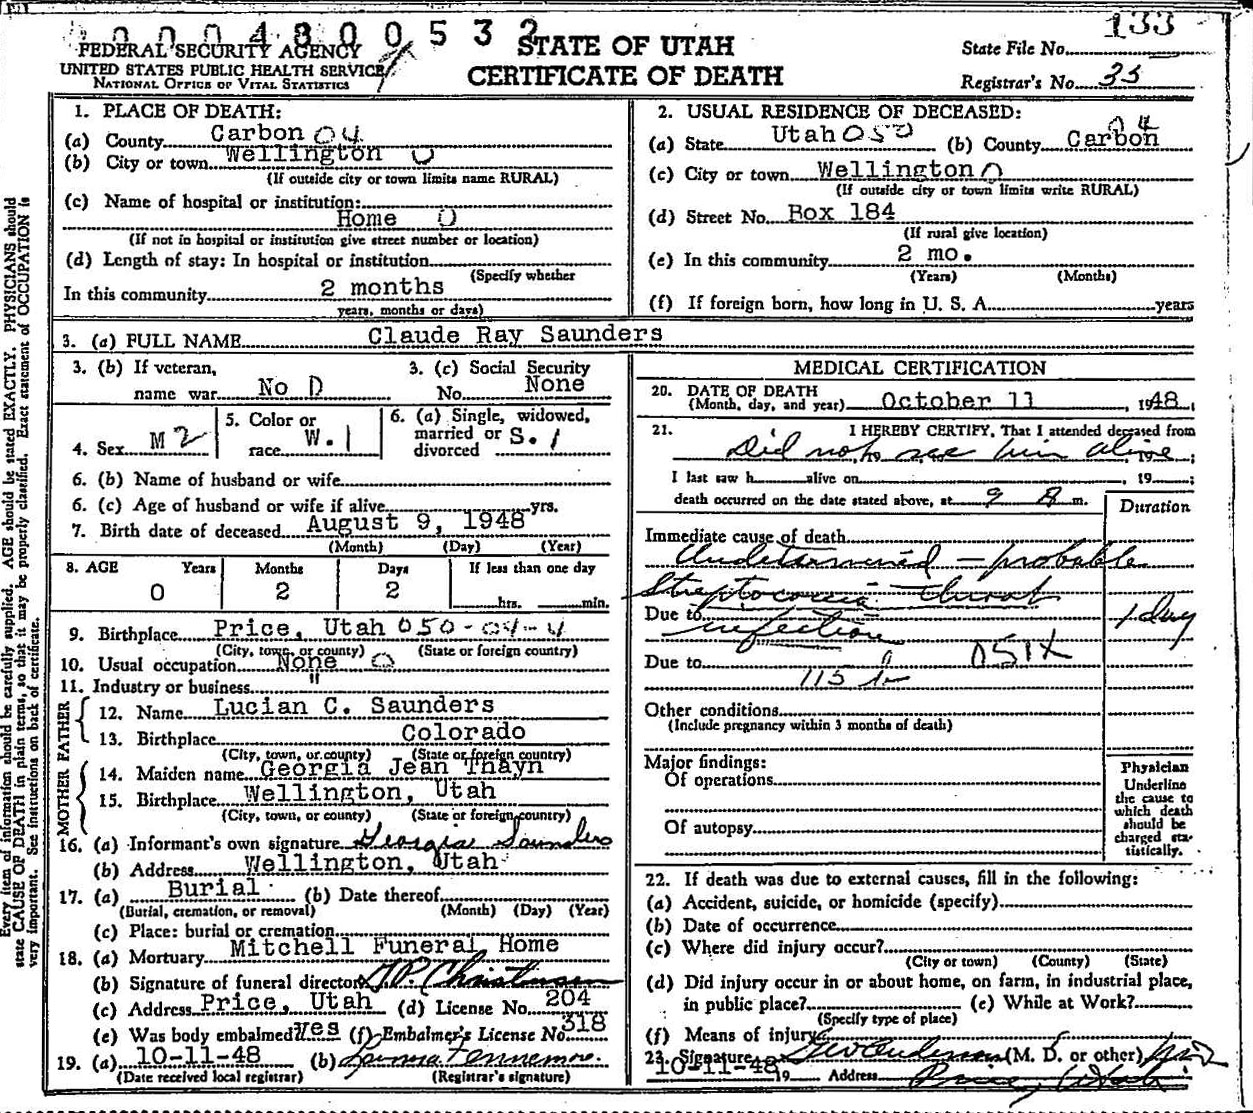 0004800532
133
FEDERAL SECURITY AGENCY
UNITED STATES PUBLIC HEALTH SERVICE
NATIONAL OFFICE OF VITAL STATISTICS
STATE OF UTAH
CERTIFICATE OF DEATH
State File No.
Registrar's No. 35
1. PLACE OF DEATH:
(a) County Carbon 04
(b) City or town Wellington 0
(If outside city or town limits name RURAL)
(c) Name of hospital or institution:
Home 0
(If not in hospital or institution give street number or location)
(d) Length of stay: In hospital or institution
(Specify whether
In this community 2 months
years, months or days)
2. USUAL RESIDENCE OF DECEASED:
(a) State Utah 050 (b) County Carbon 04
(c) City or town Wellington 0
(If outside city or town limits write RURAL)
(d) Street No. Box 184
(If rural give location)
(e) In this community 2 mo.
(Years) (Months)
(f) If foreign born, how long in U. S. A. years
3. (a) FULL NAME Claude Ray Saunders
3. (b) If veteran, name war No D
3. (c) Social Security No. None
4. Sex M 2
5. Color or race W. 1
6. (a) Single, widowed, married or divorced S. 1
6. (b) Name of husband or wife
6. (c) Age of husband or wife if alive yrs.
7. Birth date of deceased August 9, 1948
(Month) (Day) (Year)
8. AGE Years Months Days If less than one day
0 2 2 hrs. min.
9. Birthplace Price, Utah 050-04-4
(City, town, or county) (State or foreign country)
10. Usual occupation None 0
11. Industry or business "
FATHER
12. Name Lucian C. Saunders
13. Birthplace Colorado
(City, town, or county) (State or foreign country)
MOTHER
14. Maiden name Georgia Jean Thayn
15. Birthplace Wellington, Utah
(City, town, or county) (State or foreign country)
16. (a) Informant's own signature Georgia Saunders
(b) Address Wellington, Utah
17. (a) Burial (b) Date thereof
(Burial, cremation, or removal) (Month) (Day) (Year)
(c) Place: burial or cremation
18. (a) Mortuary Mitchell Funeral Home
(b) Signature of funeral director J.P. Christensen
(c) Address Price, Utah (d) License No. 204
(e) Was body embalmed? Yes (f) Embalmer's License No. 318
19. (a) 10-11-48 (b)
(Date received local registrar) (Registrar's signature)
MEDICAL CERTIFICATION
20. DATE OF DEATH
(Month, day, and year) October 11, 1948
21. I HEREBY CERTIFY, That I attended deceased from
Did not see him alive, 19
I last saw h alive on, 19 ;
death occurred on the date stated above, at 9 A m.
Duration
Immediate cause of death
Undetermined - probable
Streptococcic throat
Due to infection 1 day
Due to 051X
115 b
Other conditions
(Include pregnancy within 3 months of death)
Major findings:
Of operations
Of autopsy
Physician
Underline
the cause to
which death
should be
charged sta-
tistically.
22. If death was due to external causes, fill in the following:
(a) Accident, suicide, or homicide (specify)
(b) Date of occurrence
(c) Where did injury occur?
(City or town) (County) (State)
(d) Did injury occur in or about home, on farm, in industrial place,
in public place? (e) While at Work?
(Specify type of place)
(f) Means of injury
23. Signature (M. D. or other) M D
10-11-48 19 Address Price, Utah
Every item of information should be carefully supplied. AGE should be stated EXACTLY. PHYSICIANS should
state CAUSE OF DEATH in plain terms, so that it may be properly classified. Exact statement of OCCUPATION is
very important. See instructions on back of certificate.